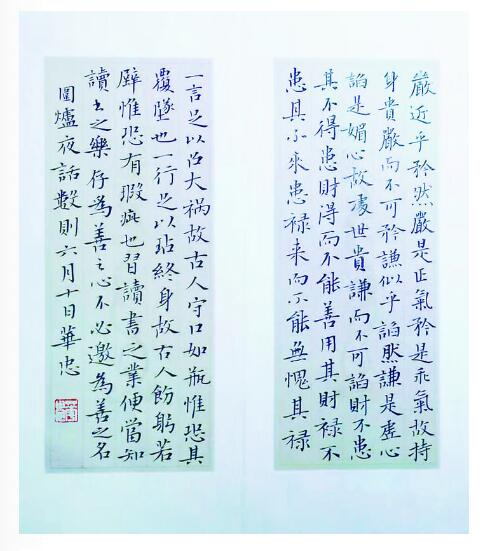 嚴近乎矜然嚴是正氣矜是乖氣故持
身貴嚴而不可矜謙似乎諂然謙是虛心
諂是媚心故處世貴謙而不可諂財不患
其不得患財得而不能善用其財祿不
患其不來患祿来而不能無愧其祿
一言足以召大禍故古人守口如瓶惟恐其
覆墜也一行足以玷終身故古人飭躬若
璧惟恐有瑕疵也習讀書之業便當知
讀書之樂存為善之心不必邀為善之名
圍爐夜話數則六月十日華忠